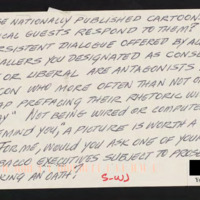 SE NATIONALLY PUBLISHED CARTOONS
ICAL GUESTS RESPOND TO THEM?
RSISTENT DIALOGUE OFFERED BY AL
ALLERS YOU DESIGNATED AS CONSE
OR LIBERAL ARE ANTAGONISTS
ON WHO MORE OFTEN THAN NOT
AP PREFACING THEIR RHETORIC WI
AY" NOT BEING WIRED OR COMPUTE
EMIND YOU, "A PICTURE IS WORTH A
FOR ME, WOULD YOU ASK ONE OF YOUR
BACCO EXECUTIVES SUBJECT TO PROSE
KING AN OATH?